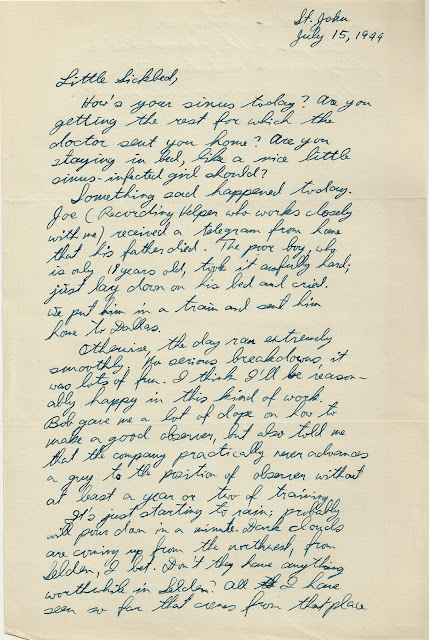 St. John
July 15, 1944
Little Sickbed,
How's your sinus today? Are you
getting the rest for which the
doctor sent you home? Are you
staying in bed, like a nice little
sinus-infected girl should?
Something sad happened today.
Joe (Recording Helper who works closely
with me) received a telegram from home
that his father died. The poor boy, who
is only 18 years old, took it awfully hard;
just lay down on his bed and cried.
We put him in a train and sent him
home to Dallas.
Otherwise, the day ran extremely
smoothly. No serious breakdowns, it
was lots of fun. I think I'll be reason-
ably happy in this kind of work.
Bob gave me a lot of dope on how to
make a good observer, but also told me
that the company practically never advances
a guy to the position of observer without
at least a year or two of training.
It's just starting to rain; probably
will pour down in a minute. Dark clouds
are coming up from the northwest, from
Selden, I bet. Don't they have anything
worthwhile in Selden? All I have
seen so far that comes from that place